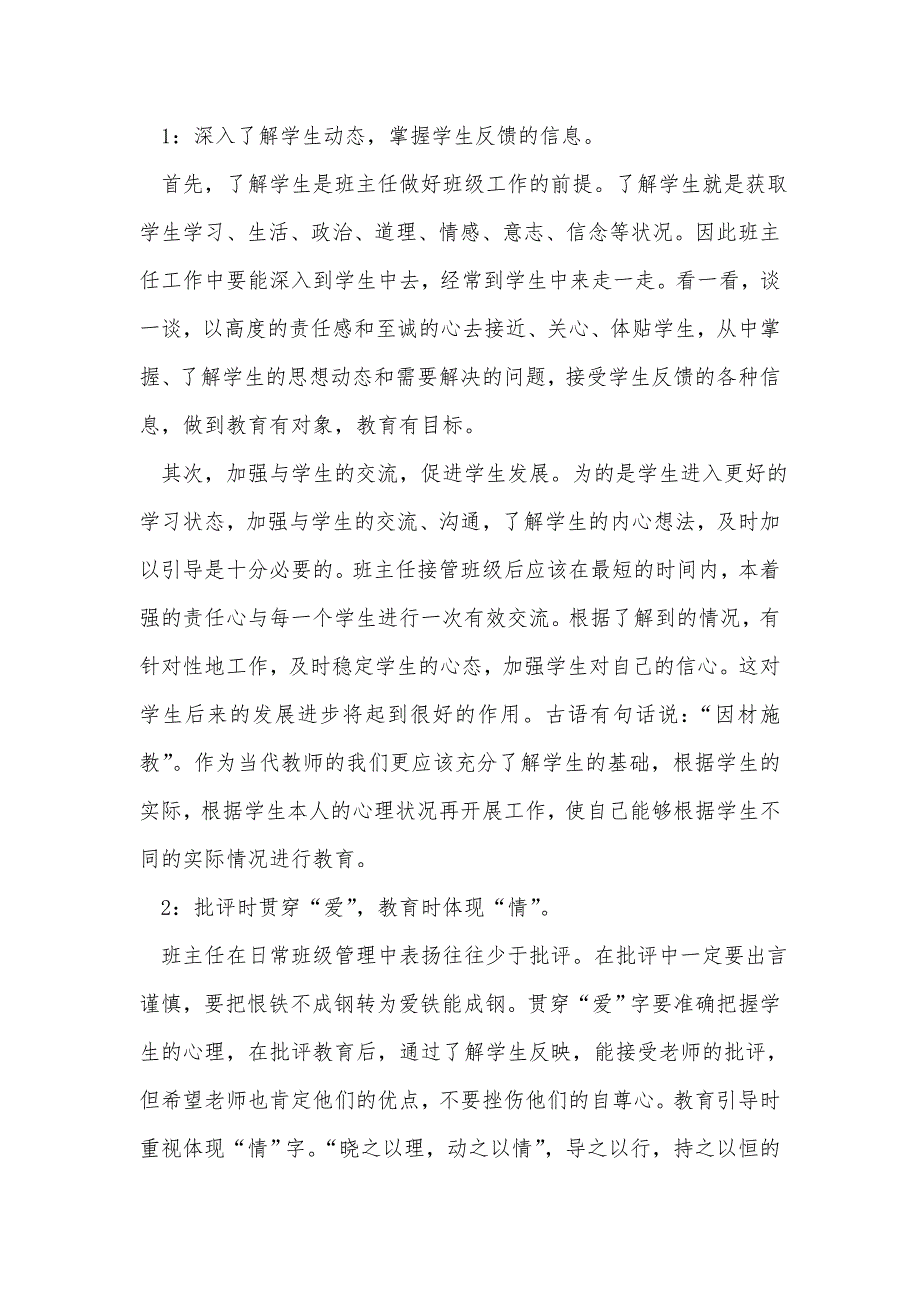 1：深入了解学生动态，掌握学生反馈的信息。
首先，了解学生是班主任做好班级工作的前提。了解学生就是获取
学生学习、生活、政治、道理、情感、意志、信念等状况。因此班主
任工作中要能深入到学生中去，经常到学生中来走一走。看一看，谈
一谈，以高度的责任感和至诚的心去接近、关心、体贴学生，从中掌
握、了解学生的思想动态和需要解决的问题，接受学生反馈的各种信
息，做到教育有对象，教育有目标。
其次，加强与学生的交流，促进学生发展。为的是学生进入更好的
学习状态，加强与学生的交流、沟通，了解学生的内心想法，及时加
以引导是十分必要的。班主任接管班级后应该在最短的时间内，本着
强的责任心与每一个学生进行一次有效交流。根据了解到的情况，有
针对性地工作，及时稳定学生的心态，加强学生对自己的信心。这对
学生后来的发展进步将起到很好的作用。古语有句话说：“因材施
教”。作为当代教师的我们更应该充分了解学生的基础，根据学生的
实际，根据学生本人的心理状况再开展工作，使自己能够根据学生不
同的实际情况进行教育。
2：批评时贯穿“爱”，教育时体现“情”。
班主任在日常班级管理中表扬往往少于批评。在批评中一定要出言
谨慎，要把恨铁不成钢转为爱铁能成钢。贯穿“爱”字要准确把握学
生的心理，在批评教育后，通过了解学生反映，能接受老师的批评，
但希望老师也肯定他们的优点，不要挫伤他们的自尊心。教育引导时
重视体现“情”字。“晓之以理，动之以情”，导之以行，持之以恒的